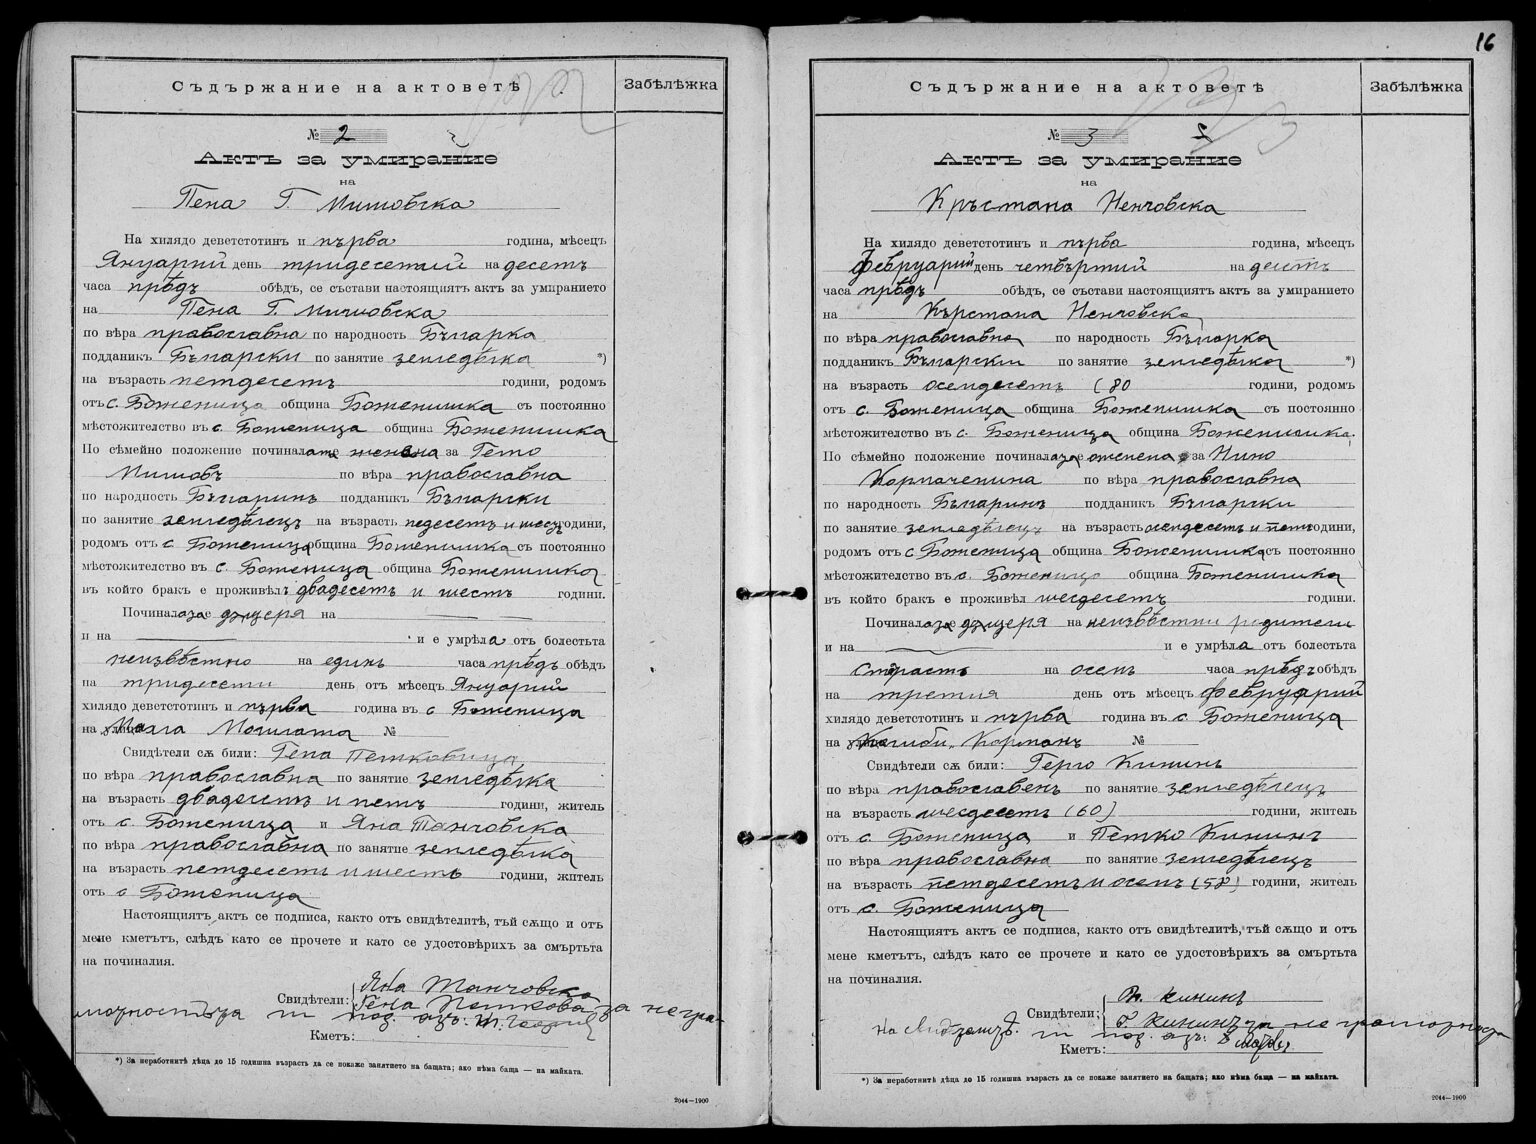 Съдържание на актоветѣ
Забѣлѣжка
№ 2
Актъ за умирание
на
Пена Г. Мишовска
На хилядо деветстотин и първа година, мѣсецъ
Януарий день тридесетий на десетъ
часа прѣдъ обѣдъ, се състави настоящиятъ актъ за умиранието
на Пена Г. Мишовска
по вѣра православна по народность Бъларка
подданикъ Бъларски по занятие земледѣлка *)
на възрасть петдесеть години, родомъ
отъ с. Боженица община Боженишка съ постоянно
мѣстожителство въ с. Боженица община Боженишка
По сѣмейно положение починалата женена за Гето
Мишовъ по вѣра православна
по народность Бъларинъ подданикъ Бъларски
по занятие земледѣлецъ на възрасть педесеть и шесть години,
родомъ отъ с Боженица община Боженишка съ постоянно
мѣстожителство въ с. Боженица община Боженишка
въ който бракъ е проживѣлъ двадесеть и шесть години.
Починалазае дъщеря на
и на и е умрѣла отъ болестьта
неизвѣстно на единъ часа прѣдъ обѣдъ
на тридесети день отъ мѣсецъ Януарий
хилядо деветстотин и първа година въ с Боженица
на улица Маала Могилата №
Свидѣтели сѫ били: Гена Петковица
по вѣра православна по занятие земледѣлка
на възрасть двадесеть и петъ години, житель
отъ с. Боженица и Яна Танчовска
по вѣра православна по занятие земледѣлка
на възрасть петдесеть и шесть години, житель
отъ с Боженица
Настоящиятъ актъ се подписа, както отъ свидѣтелитѣ, тъй сѫщо и отъ
мене кметътъ, слѣдъ като се прочете и като се удостоверихъ за смъртьта
на починалия.
Яна Танчовска
Свидѣтели: Гена Петкова за негра-
мотностьта
Кметъ:
*) За неработнитѣ дѣца до 15 годишна възрасть да се покаже занятието на бащата; ако нѣма баща — на майката.
2044—1900
16
Съдържание на актоветѣ
Забѣлѣжка
№ 3
Актъ за умирание
на
Кръстана Ненчовска
На хилядо деветстотин и първа година, мѣсецъ
Февруарий день четвъртий на десеть
часа прѣдъ обѣдъ, се състави настоящиятъ актъ за умиранието
на Кърстана Ненчовска
по вѣра православна по народность Бъларка
подданикъ Бъларски по занятие земледѣлка *)
на възрасть осемдесеть (80 години, родомъ
отъ с. Боженица община Боженишка съ постоянно
мѣстожителство въ с. Боженица община Боженишка
По сѣмейно положение починалазае оженена за Нино
по вѣра православна
по народность Бъларинъ подданикъ Бъларски
по занятие земледѣлецъ на възрасть осемдесеть и петь години,
родомъ отъ с Боженица община Боженишка съ постоянно
мѣстожителство въ с. Боженица община Боженишка
въ който бракъ е проживѣлъ шесдесеть години.
Починалазае дъщеря на неизвѣстни родители
и на и е умрѣла отъ болестьта
Старость на осемь часа прѣдъ обѣдъ
на третия день отъ мѣсецъ Февруарий
хилядо деветстотин и първа година въ с. Боженица
на улица Корманъ №
Свидѣтели сѫ били: Герго Кининъ
по вѣра православенъ по занятие земледѣлецъ
на възрасть шесдесеть (60) години, житель
отъ с. Боженица и Петко Кининъ
по вѣра православна по занятие земледѣлецъ
на възрасть петдесеть и осемь (58) години, житель
отъ с. Боженица
Настоящиятъ актъ се подписа, както отъ свидѣтелитѣ, тъй сѫщо и отъ
мене кметътъ, слѣдъ като се прочете и като се удостоверихъ за смъртьта
на починалия.
П. Кининъ
Свидѣтели: Г. Кининъ за не грамотностьта
Кметъ:
*) За неработнитѣ дѣца до 15 годишна възрасть да се покаже занятието на бащата; ако нѣма баща — на майката.
2044—1900